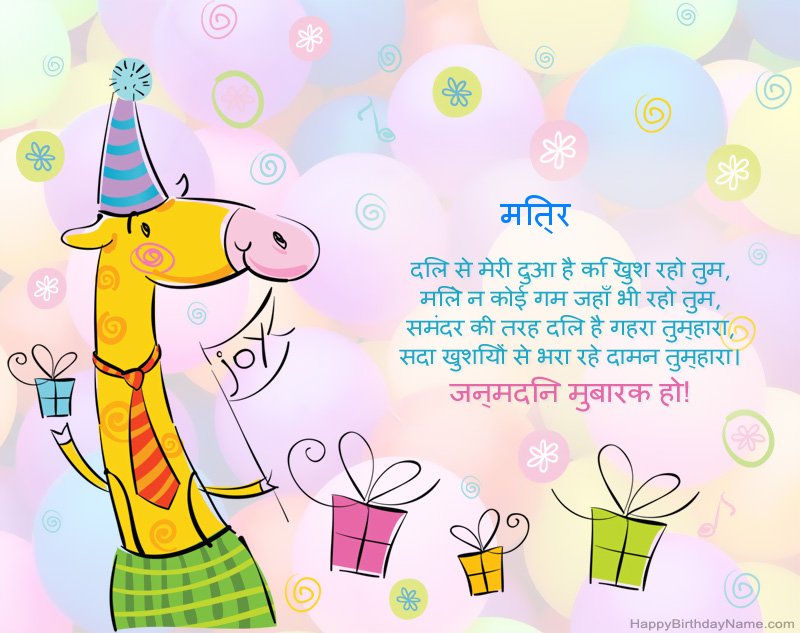 मित्र
दिल से मेरी दुआ है कि खुश रहो तुम,
मिले न कोई गम जहाँ भी रहो तुम,
समंदर की तरह दिल है गहरा तुम्हारा,
सदा खुशियों से भरा रहे दामन तुम्हारा।
जन्मदिन मुबारक हो!
joy
HappyBirthdayName.com